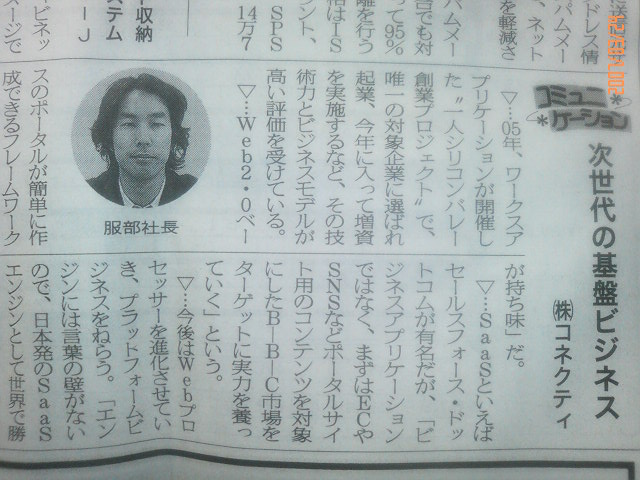 ドレス情
パムメー
、ネット
を軽減さ
パムメー
合でも対
って95%
離を行う
格はIS
ント、
SPS
14万7
ー収納
ステム
ーJ
ピネッ
メージで
コミュニ
ケーション
次世代の基盤ビジネス
㈱コネクティ
▽…05年、ワークスア
プリケーションが開催し
た〝一人シリコンバレー
創業プロジェクト〟で、
唯一の対象企業に選ばれ
起業、今年に入って増資
を実施するなど、その技
術力とビジネスモデルが
高い評価を受けている。
▽…Web2・0ベー
スのポータルが簡単に作
成できるフレームワーク
服部社長
が持ち味」だ。
▽…SaaSといえば
セールスフォース・ドッ
トコムが有名だが、「ビ
ジネスアプリケーション
ではなく、まずはECや
SNSなどポータルサイ
ト用のコンテンツを対象
にしたB―B―C市場を
ターゲットに実力を養っ
ていく」という。
▽…今後はWebプロ
セッサーを進化させてい
き、プラットフォームビ
ジネスをねらう。「エン
ジンには言葉の壁がない
ので、日本発のSaaS
エンジンとして世界で勝